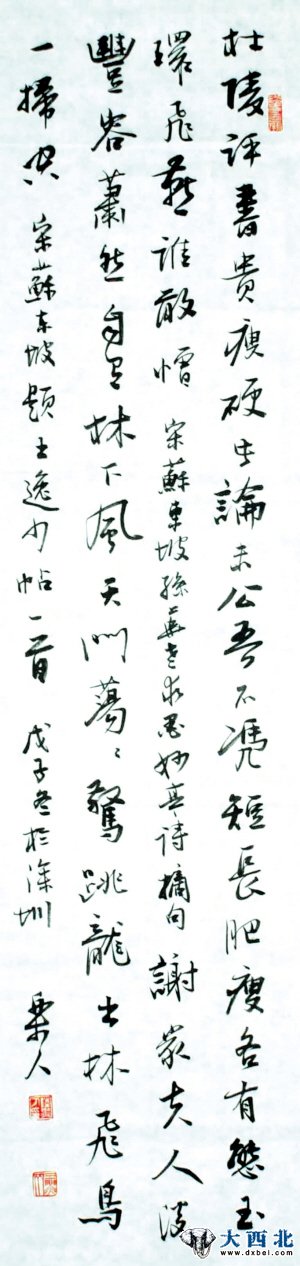 杜陵评書贵瘦硬此論未公吾不凭短長肥瘦各有態玉
環飛燕谁敢憎 宋蘇東坡孫莘老求墨妙亭诗摘句 謝家夫人淡
豐容蕭然自有林下風天門蕩々驚跳龍出林飛鳥
一掃空 宋蘇东坡题王逸少帖一首 戊子冬於深圳 栗人
大西北
www.dxbei.com